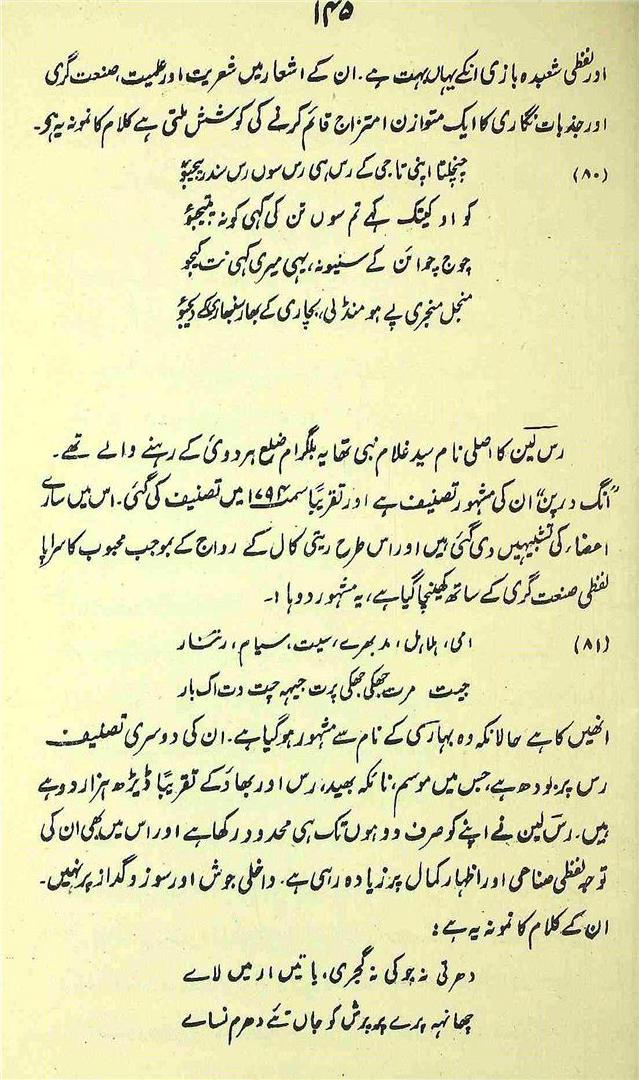 ۱۴۵
اور لفظی شعبدہ بازی انکے یہاں بہت ہے۔ ان کے اشعار میں شعریت اور علمیت، صنعت گری
اور جذبات نگاری کا ایک متوازن امتزاج قائم کرنے کی کوشش ملتی ہے کلام کا نمونہ یہ ہے۔
(۸۰) چنچلتا اپنی تاجی کے رس ہی رس سوں رس سندر پیجیو
کو او کیتک کہے تم سوں تن کی کہی کو نہ پتیجیو
چوج چوائن کے سنیو نہ، یہی میری کہی نت کیجو
منجل منجری پے ہو مندلی، بچاری کے بھار سنبھاری کے دیجیو
رس لین کا اصلی نام سید غلام نبی تھا یہ بلگرام ضلع ہردوئی کے رہنے والے تھے۔
"انگ درپن" ان کی مشہور تصنیف ہے اور تقریباً سمت ۱۷۹۴ میں تصنیف کی گئی۔ اس میں سارے
اعضاء کی تشبیہیں دی گئی ہیں اور اس طرح ریتی کال کے رواج کے بموجب محبوب کا سراپا
لفظی صنعت گری کے ساتھ کھینچا گیا ہے، یہ مشہور دوہا ا۔
(۸۱) امی، ہلاہل، مد بھرے، سیت، سیام، رتنار
جیت مرت جھکی جھکی پرت جیہہ چت دت اک بار
انھیں کا ہے حالانکہ وہ بہاری کے نام سے مشہور ہو گیا ہے۔ ان کی دوسری تصنیف
رس پربودھ ہے، جس میں موسم، نائکہ بھید، رس اور بھاؤ کے تقریباً ڈیڑھ ہزار دوہے
ہیں۔ رس لین نے اپنے کو صرف دوہوں تک ہی محدود رکھا ہے اور اس میں بھی ان کی
توجہ لفظی صناعی اور اظہار کمال پر زیادہ رہی ہے۔ داخلی جوش اور سوز و گداز پر نہیں۔
ان کے کلام کا نمونہ یہ ہے:
دھرتی نہ چوکی نہ گجری، یا تیں ار میں لاے
چھانہہ پرے پر پرش کو جاں تئے دھرم نساے